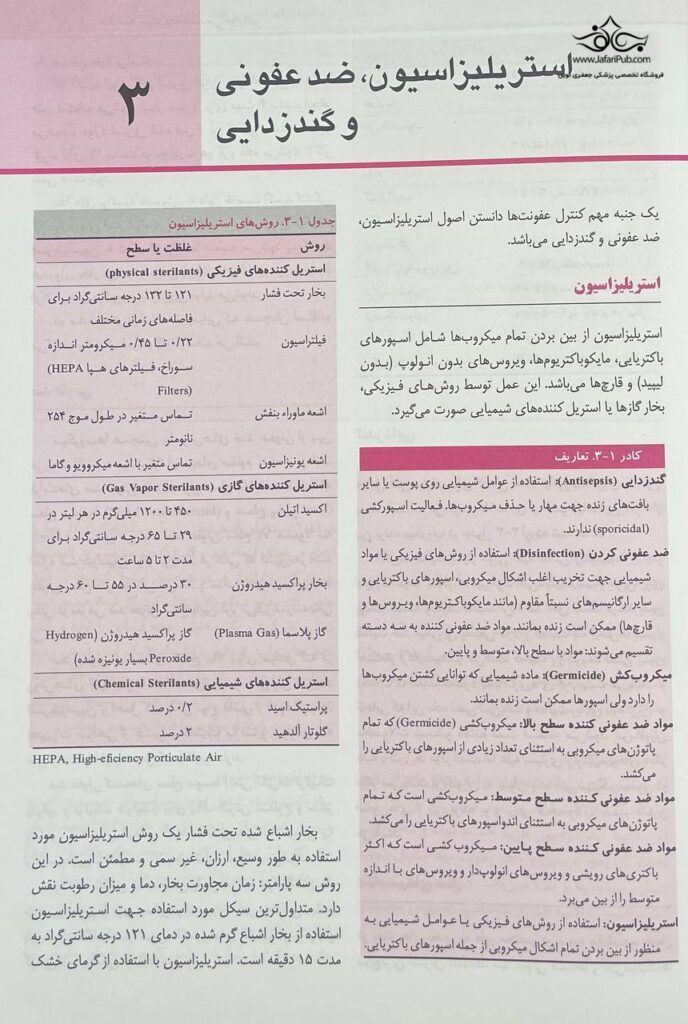 www.JafariPub.com
فروشگاه تخصصی پزشکی جعفری نوین
استریلیزاسیون، ضد عفونی
و گندزدایی
۳
یک جنبه مهم کنترل عفونت‌ها دانستن اصول استریلیزاسیون،
ضد عفونی و گندزدایی می‌باشد.
استریلیزاسیون
استریلیزاسیون از بین بردن تمام میکروب‌ها شامل اسپورهای
باکتریایی، مایکوباکتریوم‌ها، ویروس‌های بدون انولوپ (بدون
لیپید) و قارچ‌ها می‌باشد. این عمل توسط روش‌های فیزیکی،
بخار گازها یا استریل کننده‌های شیمیایی صورت می‌گیرد.
کادر ۱-۳. تعاریف
گندزدایی (Antisepsis): استفاده از عوامل شیمیایی روی پوست یا سایر
بافت‌های زنده جهت مهار یا حذف میکروب‌ها. فعالیت اسپورکشی
(sporicidal) ندارند.
ضد عفونی کردن (Disinfection): استفاده از روش‌های فیزیکی یا مواد
شیمیایی جهت تخریب اغلب اشکال میکروبی، اسپورهای باکتریایی و
سایر ارگانیسم‌های نسبتاً مقاوم (مانند مایکوباکتریوم‌ها، ویروس‌ها و
قارچ‌ها) ممکن است زنده بمانند. مواد ضد عفونی کننده به سه دسته
تقسیم می‌شوند: مواد با سطح بالا، متوسط و پایین.
میکروب‌کش (Germicide): ماده شیمیایی که توانایی کشتن میکروب‌ها
را دارد ولی اسپورها ممکن است زنده بمانند.
مواد ضد عفونی کننده سطح بالا: میکروب‌کشی (Germicide) که تمام
پاتوژن‌های میکروبی به استثنای تعداد زیادی از اسپورهای باکتریایی را
می‌کشد.
مواد ضد عفونی کننده سطح متوسط: میکروب‌کشی است که تمام
پاتوژن‌های میکروبی به استثنای اندواسپورهای باکتریایی را می‌کشد.
مواد ضد عفونی کننده سطح پایین: میکروب کشی است که اکثر
باکتری‌های رویشی و ویروس‌های انولوپ‌دار و ویروس‌های با اندازه
متوسط را از بین می‌برد.
استریلیزاسیون: استفاده از روش‌های فیزیکی یا عوامل شیمیایی به
منظور از بین بردن تمام اشکال میکروبی از جمله اسپورهای باکتریایی.
جدول ۱-۳. روش‌های استریلیزاسیون
روش غلظت یا سطح
استریل کننده‌های فیزیکی (physical sterilants)
بخار تحت فشار ۱۲۱ تا ۱۳۲ درجه سانتی‌گراد برای
فاصله‌های زمانی مختلف
فیلتراسیون ۰/۲۲ تا ۰/۴۵ میکرومتر اندازه
سوراخ، فیلترهای هپا (HEPA
Filters)
اشعه ماوراء بنفش تماس متغیر در طول موج ۲۵۴
نانومتر
اشعه یونیزاسیون تماس متغیر با اشعه میکروویو و گاما
استریل کننده‌های گازی (Gas Vapor Sterilants)
اکسید اتیلن ۴۵۰ تا ۱۲۰۰ میلی‌گرم در هر لیتر در
۲۹ تا ۶۵ درجه سانتی‌گراد برای
مدت ۲ تا ۵ ساعت
بخار پراکسید هیدروژن ۳۰ درصد در ۵۵ تا ۶۰ درجه
سانتی‌گراد
گاز پلاسما (Plasma Gas) گاز پراکسید هیدروژن (Hydrogen
Peroxide بسیار یونیزه شده)
استریل کننده‌های شیمیایی (Chemical Sterilants)
پراستیک اسید ۰/۲ درصد
گلوتار آلدهید ۲ درصد
HEPA, High-eficiency Porticulate Air
بخار اشباع شده تحت فشار یک روش استریلیزاسیون مورد
استفاده به طور وسیع، ارزان، غیر سمی و مطمئن است. در این
روش سه پارامتر: زمان مجاورت بخار، دما و میزان رطوبت نقش
دارد. متداول‌ترین سیکل مورد استفاده جهت استریلیزاسیون
استفاده از بخار اشباع گرم شده در دمای ۱۲۱ درجه سانتی‌گراد به
مدت ۱۵ دقیقه است. استریلیزاسیون با استفاده از گرمای خشک